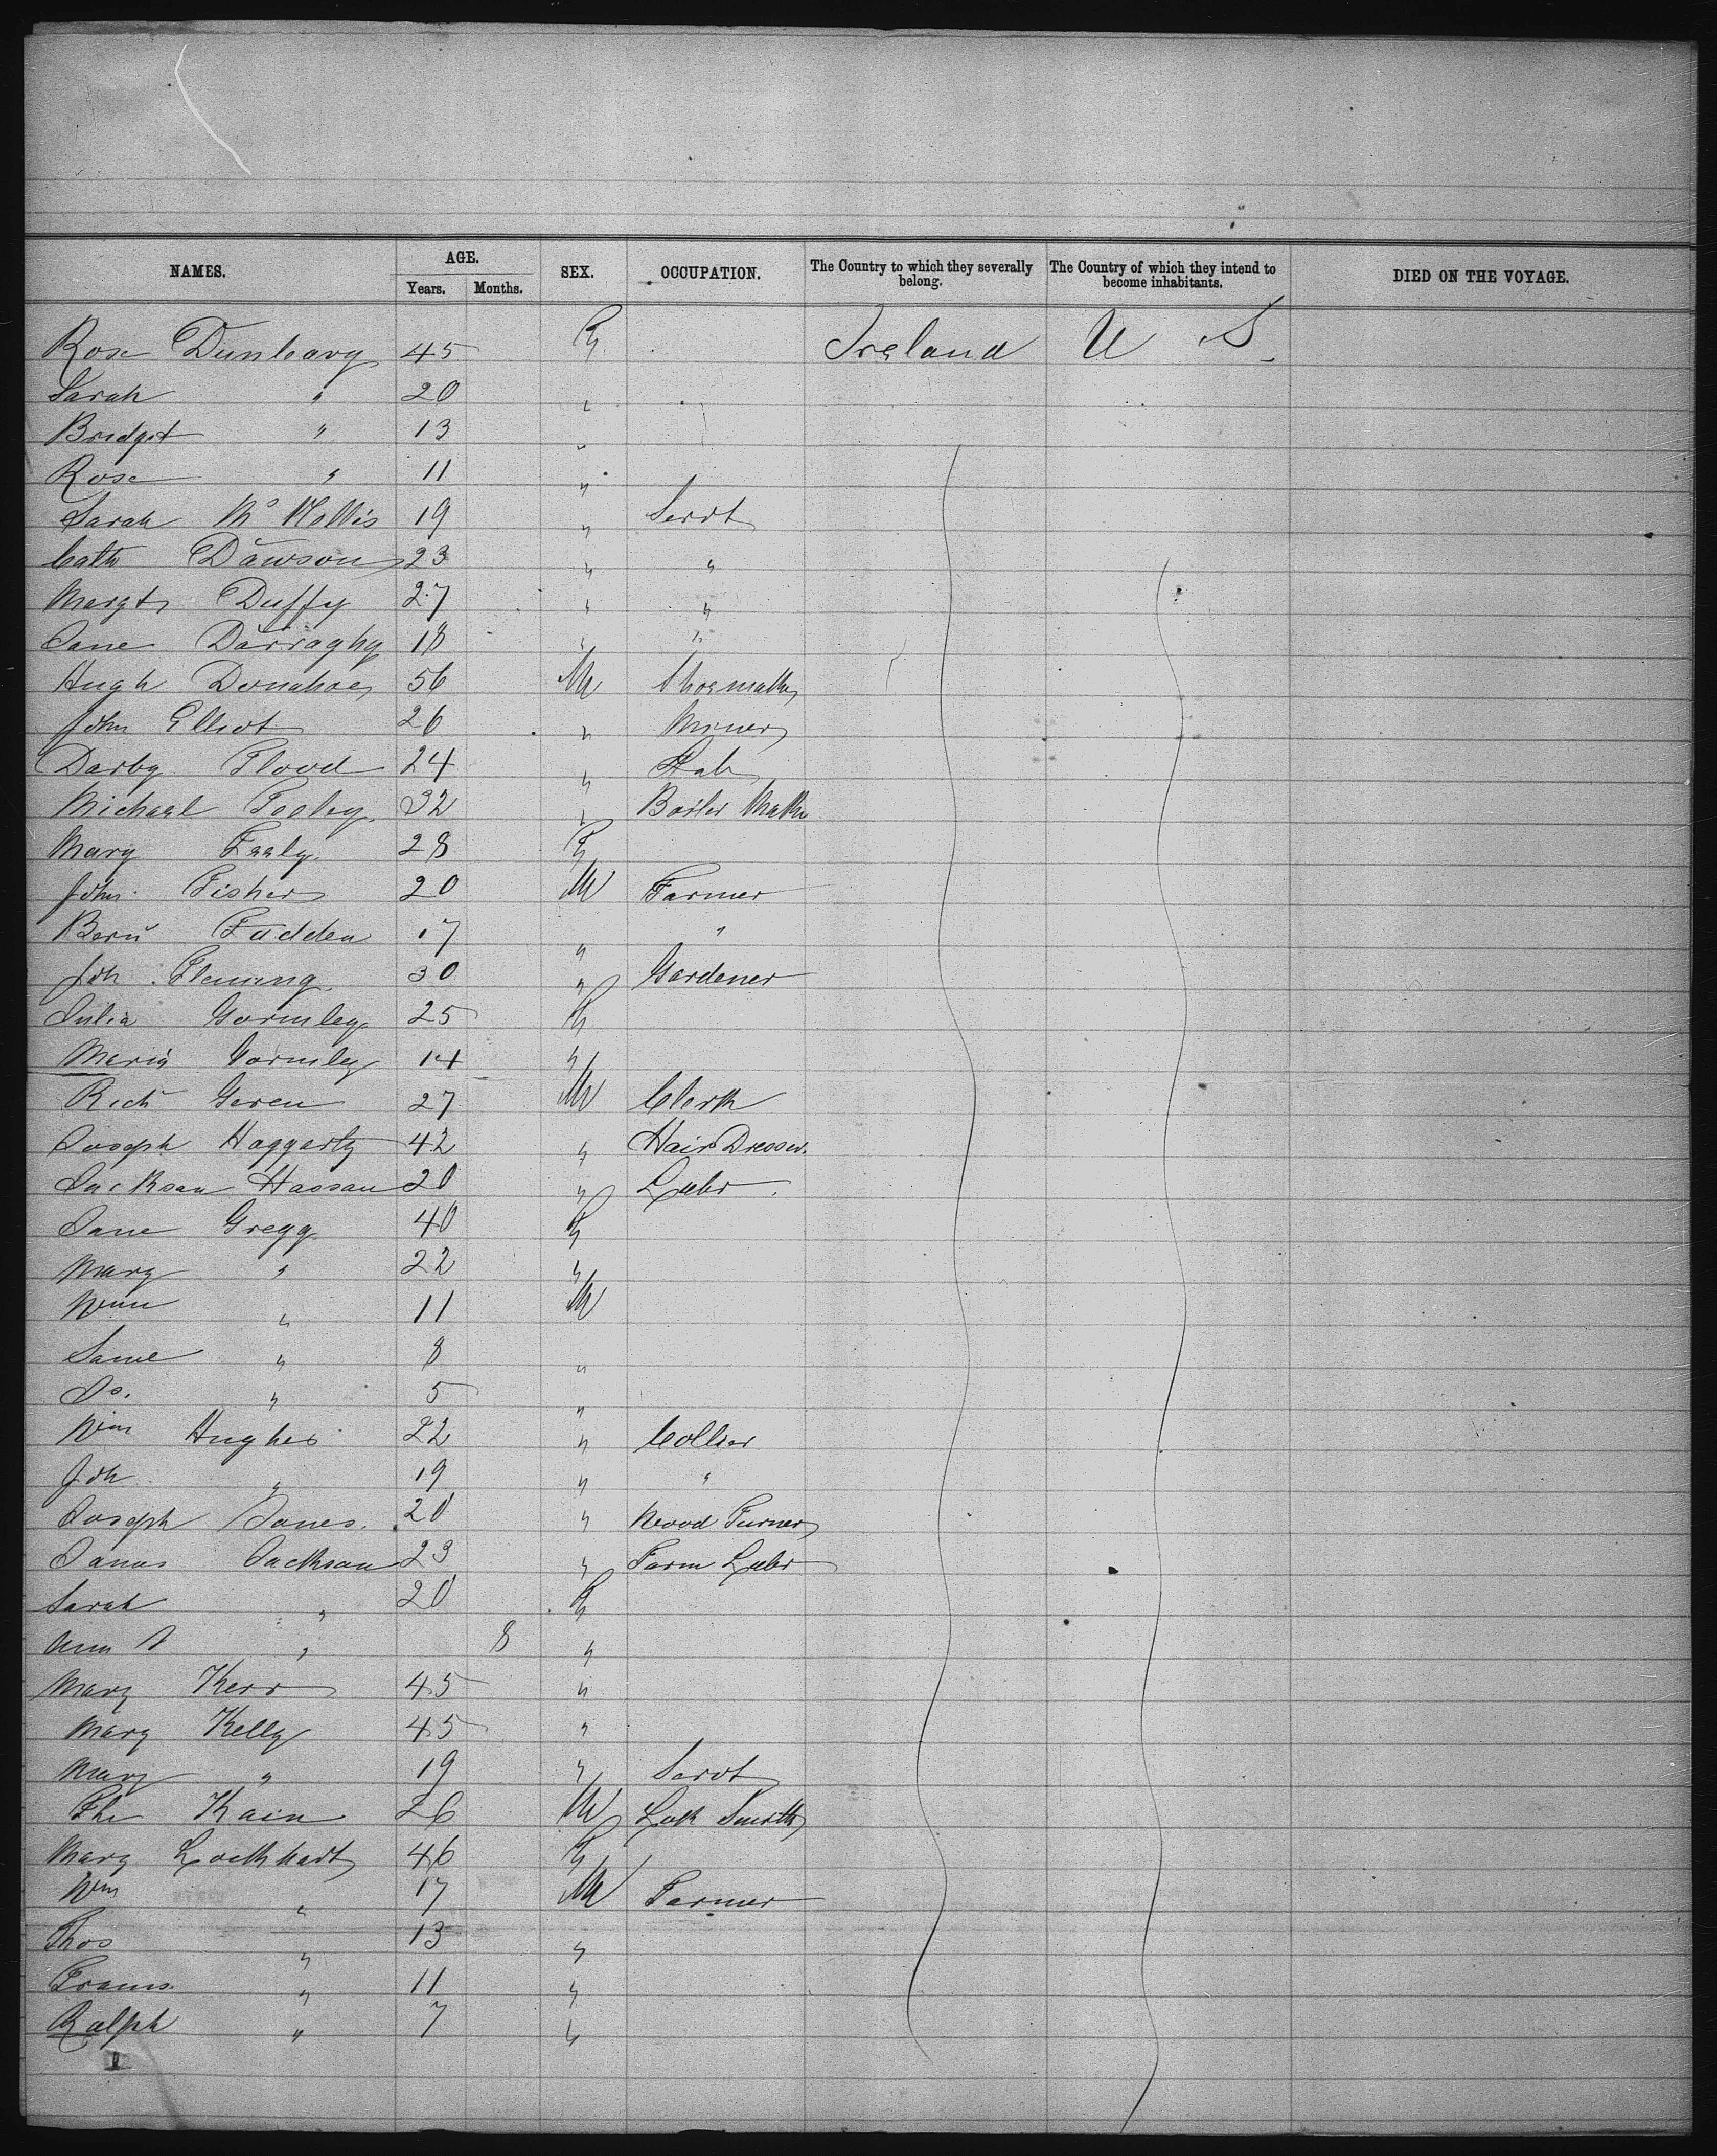 NAMES. AGE. Years. Months. SEX. OCCUPATION. The Country to which they severally belong. The Country of which they intend to become inhabitants. DIED ON THE VOYAGE.
Rose Dunleavy 45 F Ireland U S
Sarah " 20 "
Bridget " 13 "
Rose " 11 "
Sarah Mc 19 " Servt
Cath Dawson 23 " "
Margt Duffy 27 " "
Jane Darraghy 18 " "
Hugh Donahoe 56 M Shoemaker
John Elliot 26 " Miner
Darby Flood 24 "
Michael Feeley 32 " Boiler Maker
Mary Fealy 28 F
John Fisher 20 M Farmer
Fadden 17 " "
Joh Fleming 30 " Gardener
Julia Gormley 25 F
Maria Gormley 14 "
Richd 27 M Clerk
Joseph Haggarty 42 " Hair Dresser
Jackson Hassan 20 " Labr
Jane Gregg 40 F
Mary " 22 "
Wm " 11 M
Saml " 8 "
Jo. " 5 "
Wm Hughes 22 " Collier
Joh " 19 " "
Joseph Jones 20 " Wood Turner
James Jackson 23 " Farm Labr
Sarah " 20 F
Ann " 8 "
Mary Kerr 45 "
Mary Kelly 45 "
Mary " 19 " Servt
Kain 26 M Lock Smith
Mary Lockhart 46 F
Wm " 17 M Farmer
Thos " 13 "
Francis " 11 "
Ralph " 7 "